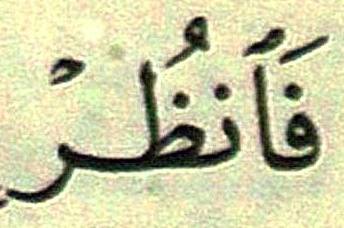 فَٱنظُرْ